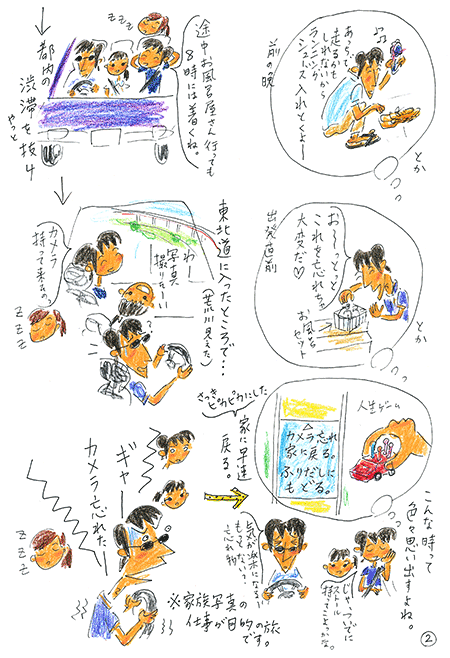 Z Z Z
途中お風呂屋さん行っても
8時には着くね。
やっと
都内の
渋滞を抜け
東北道に入ったところで…
(荒川見えた)
わー
写真
撮りたーい
カメラ
持って来たの?
Z Z Z
ギャー
カメラ忘れた
Z Z Z
さっき
ピカピカにした
家に早速
戻る。
※家族写真の
仕事が目的の旅
です。
あっちで
走るかも
しれないから
ランニング
シューズ入れとくよー
前の晩
とか
お〜っとっと
これを忘れちゃ
大変だ♡
お風呂
セット
出発直前
とか
人生ゲーム
カメラ忘れ
家に戻る。
ふりだしに
もどる。
こんな時って
色々思い出すよね。
じゃ、ついでに
ストール
持ってこよっかな。
忘れ物
②